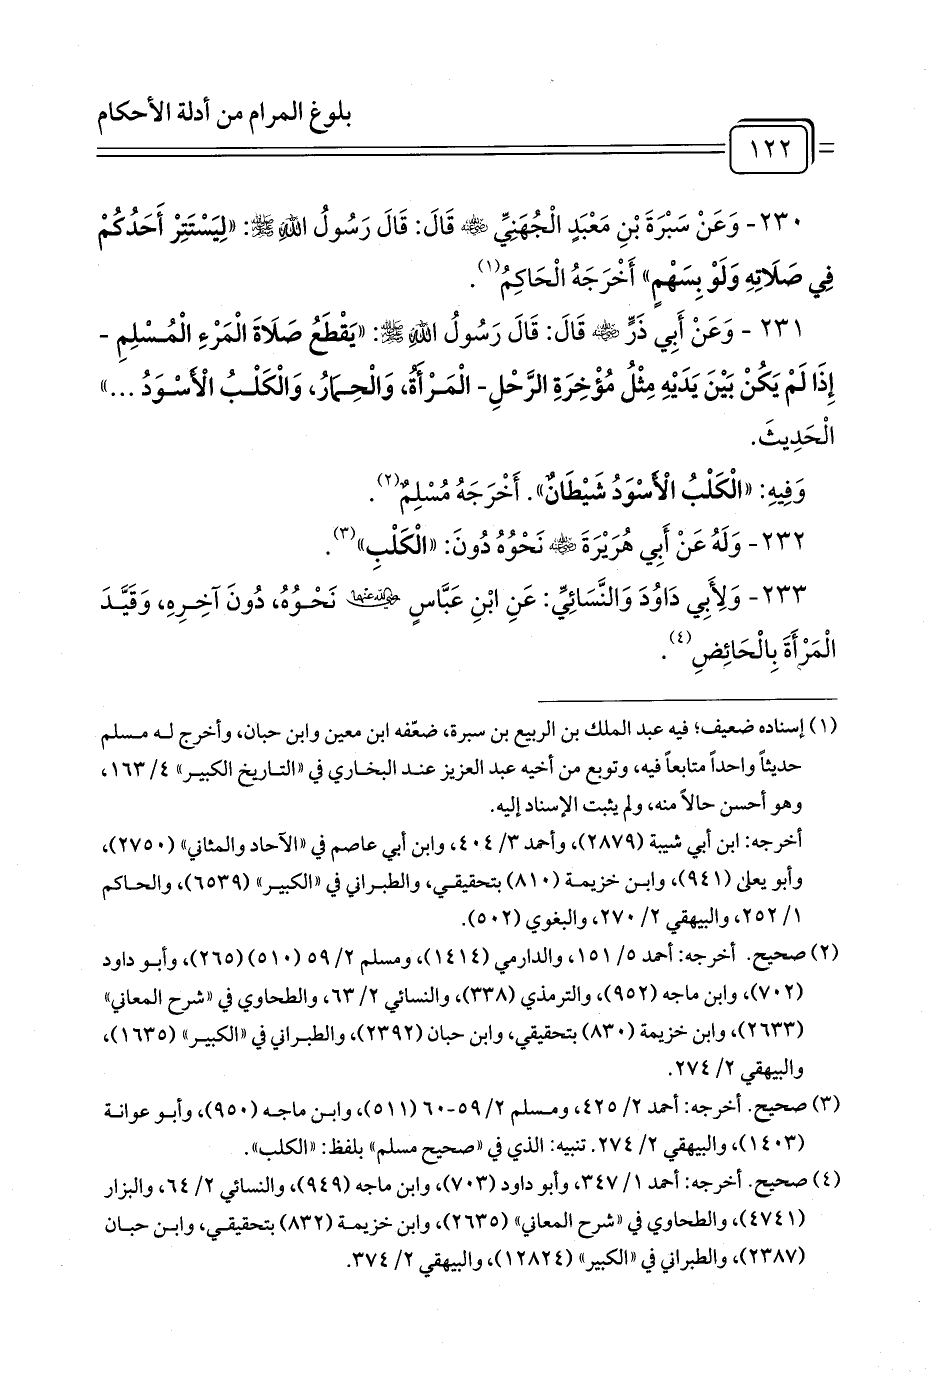 بلوغ المرام من أدلة الأحكام
١٢٢
٢٣٠- وَعَنْ سَبْرَةَ بْنِ مَعْبَدٍ الْجُهَنِيِّ ﵁ قَالَ: قَالَ رَسُولُ اللهِ ﷺ: «لِيَسْتَتِرْ أَحَدُكُمْ
فِي صَلَاتِهِ وَلَوْ بِسَهْمٍ» أَخْرَجَهُ الْحَاكِمُ(١).
٢٣١ - وَعَنْ أَبِي ذَرٍّ ﵁ قَالَ: قَالَ رَسُولُ اللهِ ﷺ: «يَقْطَعُ صَلَاةَ الْمَرْءِ الْمُسْلِمِ -
إِذَا لَمْ يَكُنْ بَيْنَ يَدَيْهِ مِثْلُ مُؤْخِرَةِ الرَّحْلِ- الْمَرْأَةُ، وَالْحِمَارُ، وَالْكَلْبُ الْأَسْوَدُ ...»
الْحَدِيثَ.
وَفِيهِ: «الْكَلْبُ الْأَسْوَدُ شَيْطَانٌ». أَخْرَجَهُ مُسْلِمٌ(٢).
٢٣٢- وَلَهُ عَنْ أَبِي هُرَيْرَةَ ﵁ نَحْوُهُ دُونَ: «الْكَلْبِ»(٣).
٢٣٣- وَلِأَبِي دَاوُدَ وَالنَّسَائِيِّ: عَنِ ابْنِ عَبَّاسٍ ﵄ نَحْوُهُ، دُونَ آخِرِهِ، وَقَيَّدَ
الْمَرْأَةَ بِالْحَائِضِ(٤).
(١) إسناده ضعيف؛ فيه عبد الملك بن الربيع بن سبرة، ضعّفه ابن معين وابن حبان، وأخرج له مسلم
حديثاً واحداً متابعاً فيه، وتوبع من أخيه عبد العزيز عند البخاري في «التاريخ الكبير» ٤/ ١٦٣،
وهو أحسن حالاً منه، ولم يثبت الإسناد إليه.
أخرجه: ابن أبي شيبة (٢٨٧٩)، وأحمد ٣/ ٤٠٤، وابن أبي عاصم في «الآحاد والمثاني» (٢٧٥٠)،
وأبو يعلى (٩٤١)، وابن خزيمة (٨١٠) بتحقيقي، والطبراني في «الكبير» (٦٥٣٩)، والحاكم
١/ ٢٥٢، والبيهقي ٢/ ٢٧٠، والبغوي (٥٠٢).
(٢) صحيح. أخرجه: أحمد ٥/ ١٥١، والدارمي (١٤١٤)، ومسلم ٢/ ٥٩ (٥١٠) (٢٦٥)، وأبو داود
(٧٠٢)، وابن ماجه (٩٥٢)، والترمذي (٣٣٨)، والنسائي ٢/ ٦٣، والطحاوي في «شرح المعاني»
(٢٦٣٣)، وابن خزيمة (٨٣٠) بتحقيقي، وابن حبان (٢٣٩٢)، والطبراني في «الكبير» (١٦٣٥)،
والبيهقي ٢/ ٢٧٤.
(٣) صحيح. أخرجه: أحمد ٢/ ٤٢٥، ومسلم ٢/ ٥٩-٦٠ (٥١١)، وابن ماجه (٩٥٠)، وأبو عوانة
(١٤٠٣)، والبيهقي ٢/ ٢٧٤. تنبيه: الذي في «صحيح مسلم» بلفظ: «الكلب».
(٤) صحيح. أخرجه: أحمد ١/ ٣٤٧، وأبو داود (٧٠٣)، وابن ماجه (٩٤٩)، والنسائي ٢/ ٦٤، والبزار
(٤٧٤١)، والطحاوي في «شرح المعاني» (٢٦٣٥)، وابن خزيمة (٨٣٢) بتحقيقي، وابن حبان
(٢٣٨٧)، والطبراني في «الكبير» (١٢٨٢٤)، والبيهقي ٢/ ٣٧٤.